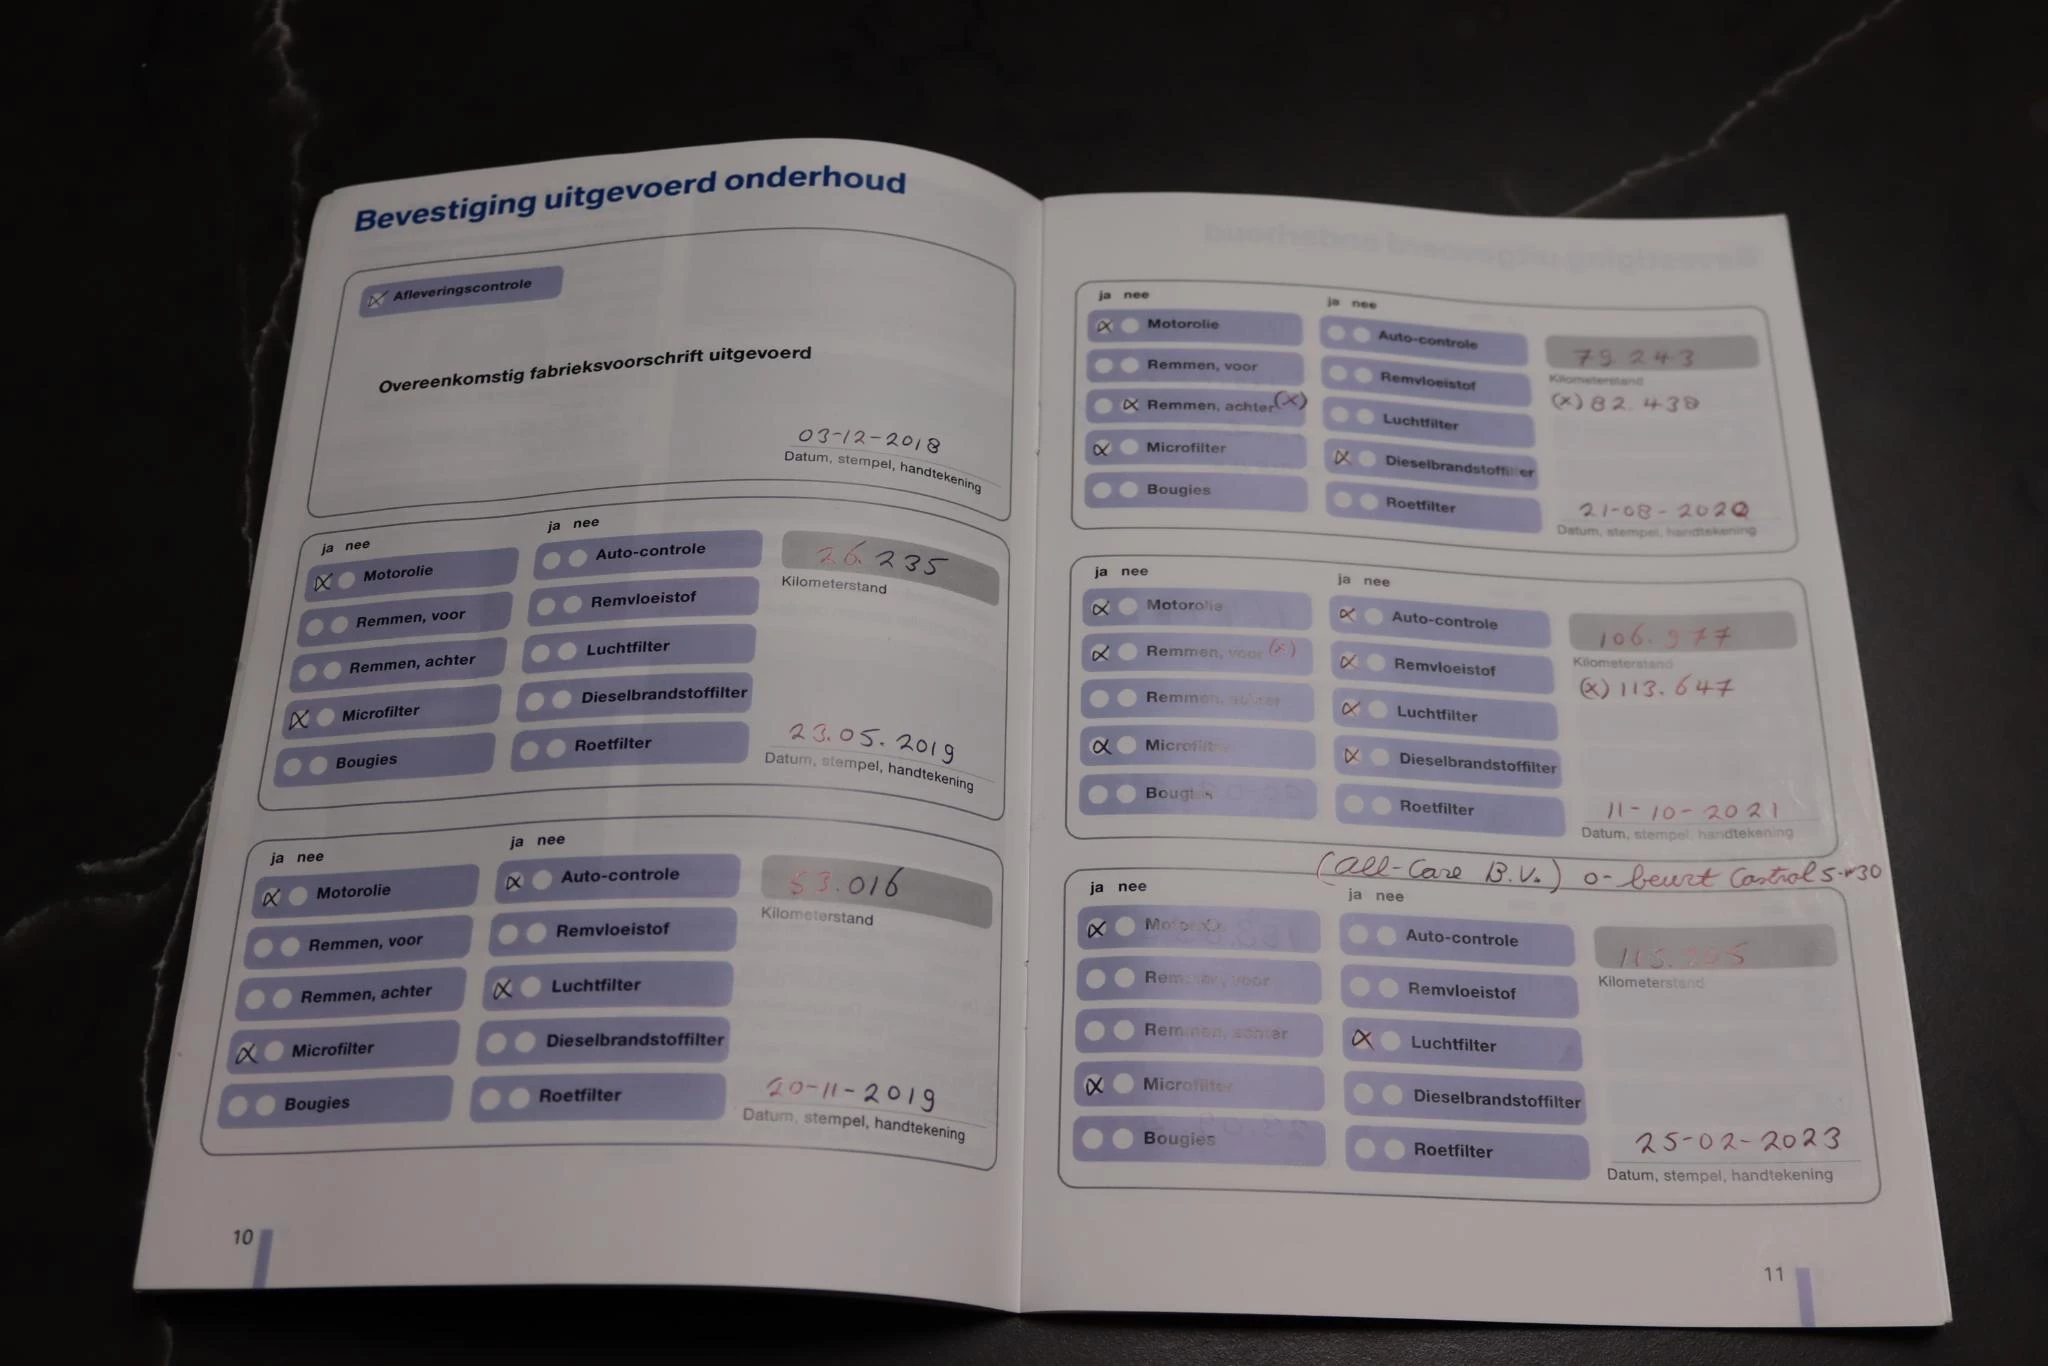 Bevestiging uitgevoerd onderhoud
Afleveringscontrole
Overeenkomstig fabrieksvoorschrift uitgevoerd
03-12-2018
Datum, stempel, handtekening
ja nee
ja nee
Motorolie
Remmen, voor
Remmen, achter
Microfilter
Bougies
Auto-controle
Remvloeistof
Luchtfilter
Dieselbrandstoffilter
Roetfilter
26.235
Kilometerstand
23.05.2019
Datum, stempel, handtekening
ja nee
ja nee
Motorolie
Remmen, voor
Remmen, achter
Microfilter
Bougies
Auto-controle
Remvloeistof
Luchtfilter
Dieselbrandstoffilter
Roetfilter
53.016
Kilometerstand
20-11-2019
Datum, stempel, handtekening
10
ja nee
ja nee
Motorolie
Remmen, voor
Remmen, achter (x)
Microfilter
Bougies
Auto-controle
Remvloeistof
Luchtfilter
Dieselbrandstoffilter
Roetfilter
79.243
Kilometerstand
(x) 82.438
21-08-2020
Datum, stempel, handtekening
ja nee
ja nee
Motorolie
Remmen, voor (x)
Remmen, achter
Microfilter
Bougies
Auto-controle
Remvloeistof
Luchtfilter
Dieselbrandstoffilter
Roetfilter
106.977
Kilometerstand
(x) 113.647
11-10-2021
Datum, stempel, handtekening
(All-Care B.V.) o-beurt Castrol 5-w30
ja nee
ja nee
Motorolie
Remmen, voor
Remmen, achter
Microfilter
Bougies
Auto-controle
Remvloeistof
Luchtfilter
Dieselbrandstoffilter
Roetfilter
Kilometerstand
25-02-2023
Datum, stempel, handtekening
11